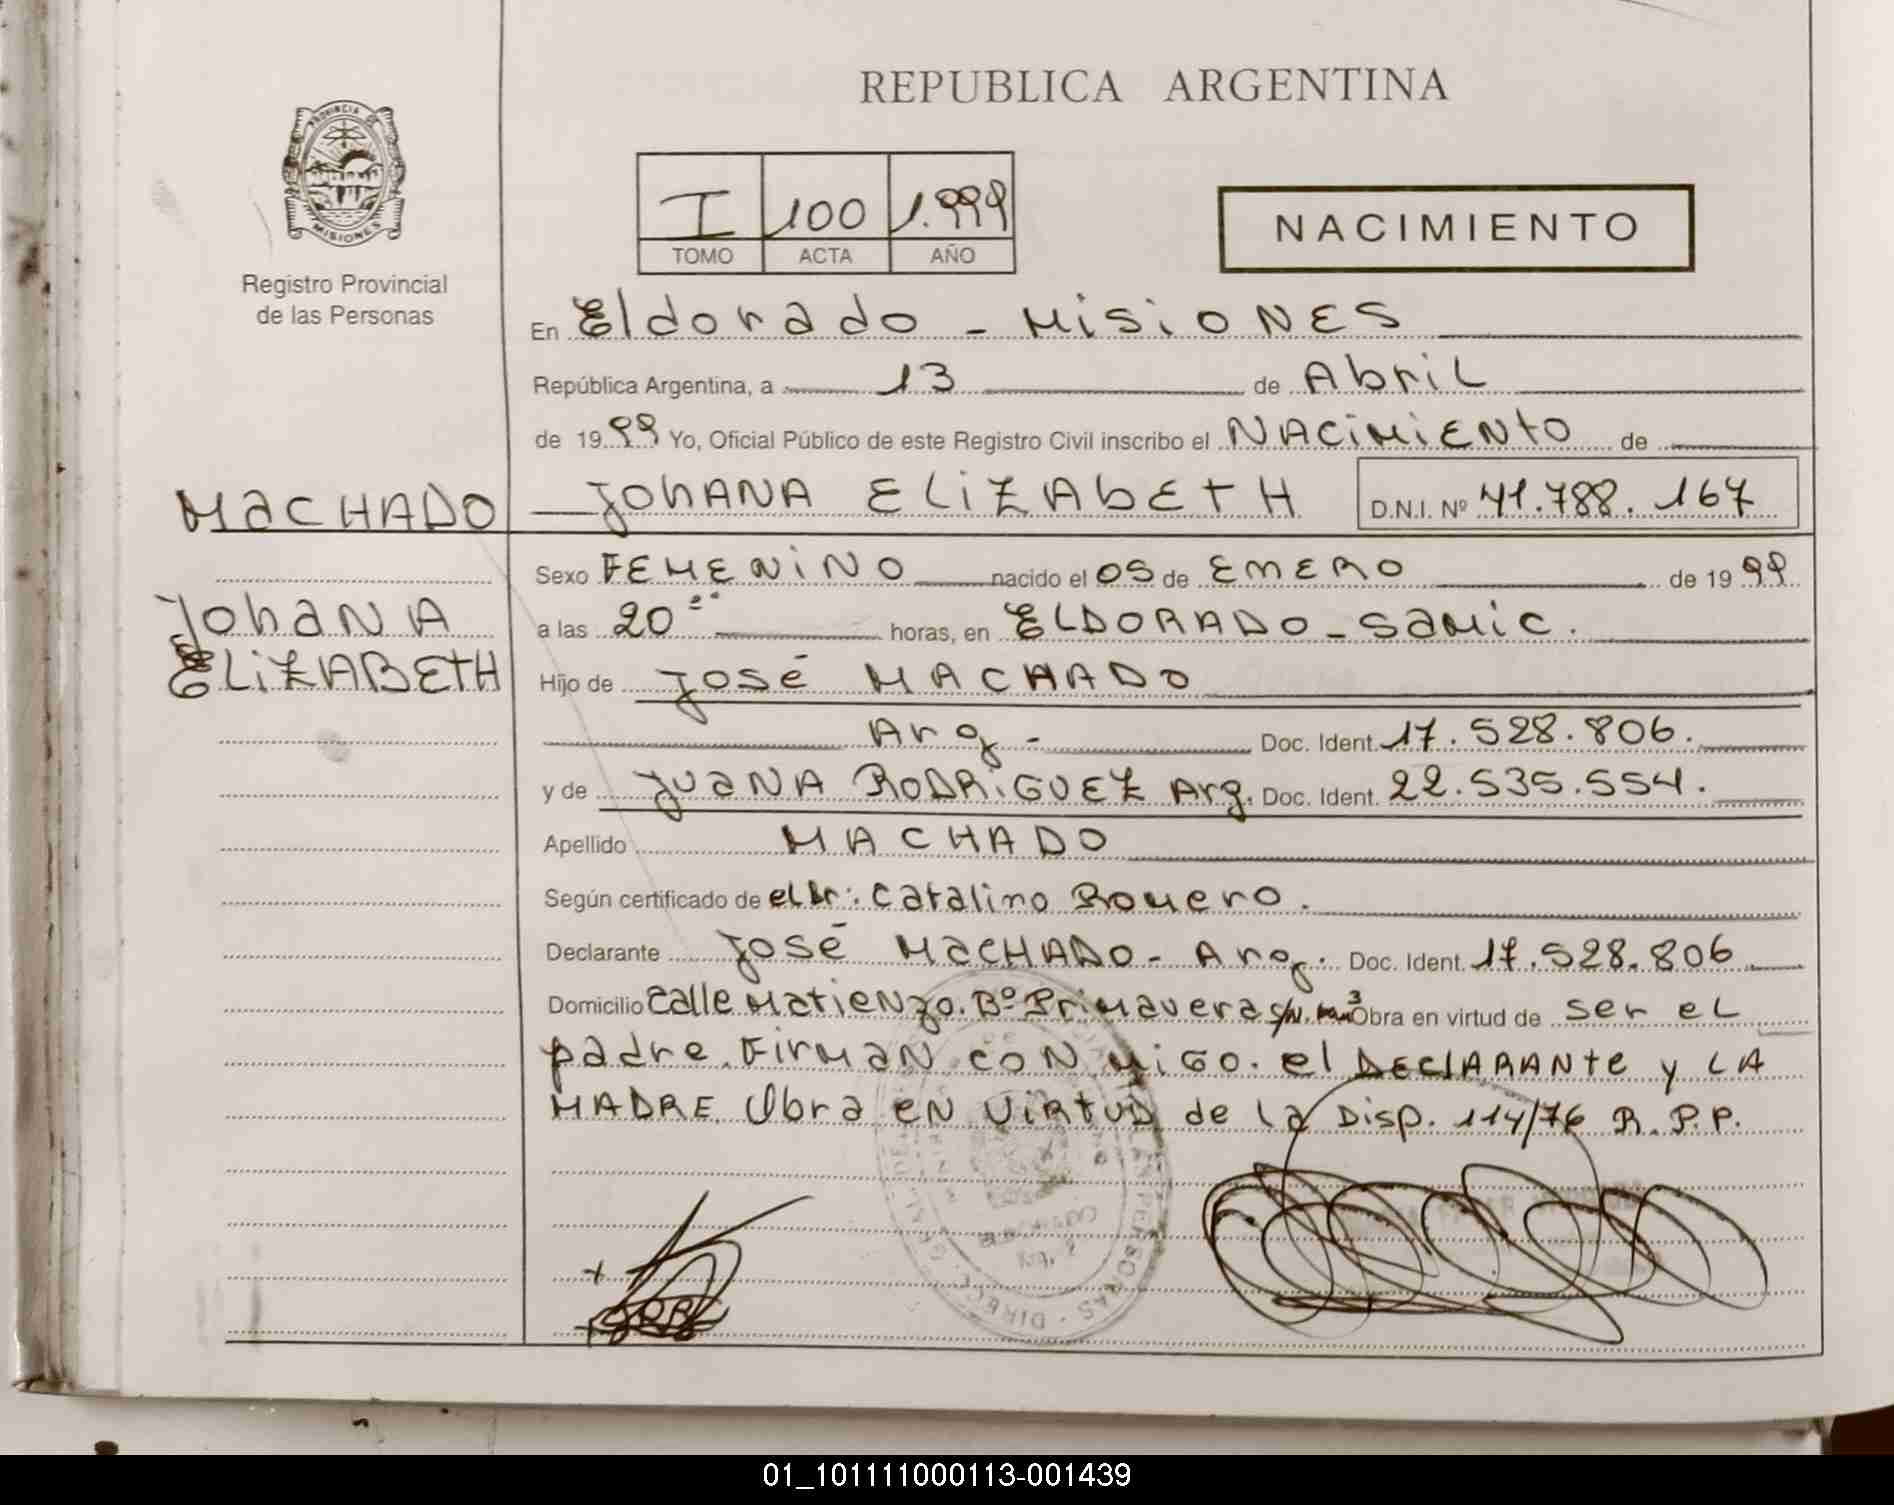 REPUBLICA ARGENTINA
PROVINCIA DE
MISIONES
Registro Provincial
de las Personas
I 100 1.999
TOMO ACTA AÑO
NACIMIENTO
En Eldorado - MisiONES
República Argentina, a 13 de Abril
de 1999 Yo, Oficial Público de este Registro Civil inscribo el NACiMiENtO de
MacHADO JohANA ELiZAbEtH D.N.I. Nº 41.788.167
Sexo FEMENiNO nacido el 05 de ENERO de 1999
JohaNA
ELiZABEtH
a las 20 horas, en ELDORADO - SaMic.
Hijo de José MACHADO
Arg - Doc. Ident. 17.528.806.
y de JUaNA RODRiGUEZ Arg. Doc. Ident. 22.535.554.
Apellido MACHADO
Según certificado de el Dr: Catalino Romero.
Declarante José MacHADO - Arg. Doc. Ident. 17.528.806
Domicilio Calle MatieNzo. Bº PriMavera S/N. Obra en virtud de ser el
padre. FirMaN coNMiGO. el DEClARANte y LA
MADRE. Obra eN ViRtUD de la Disp. 114/76 R.P.P.
01_101111000113-001439